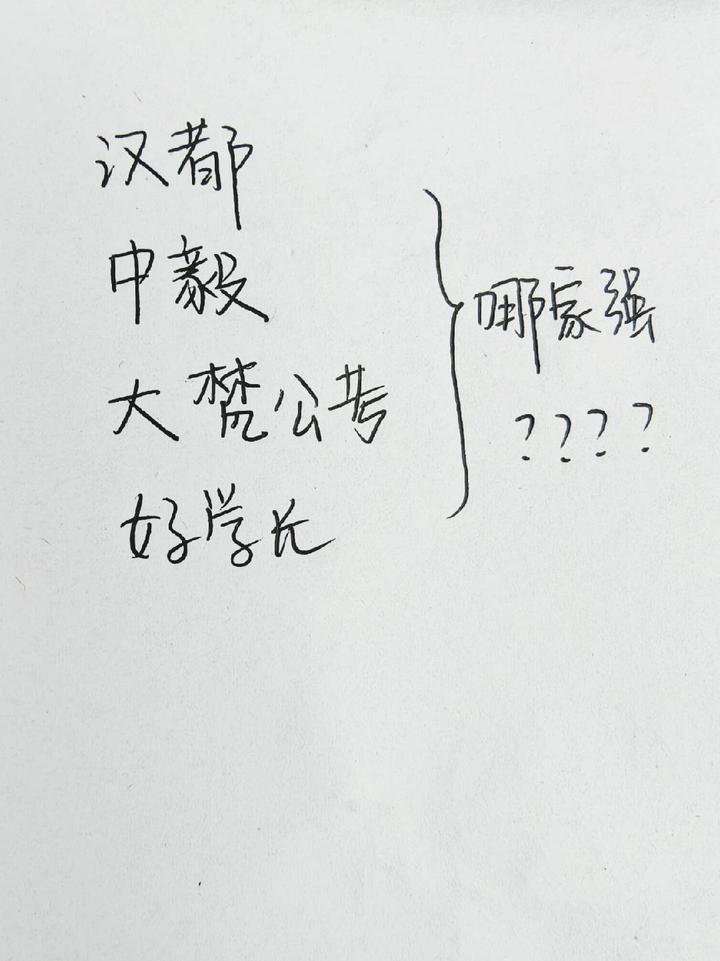 汉都
中毅
大梵公考
好学长
哪家强
????